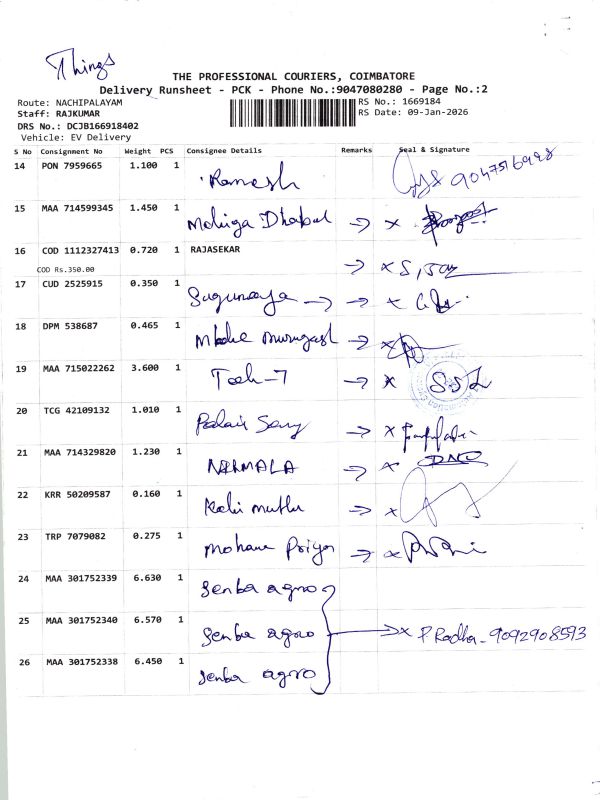 Things
THE PROFESSIONAL COURIERS, COIMBATORE
Delivery Runsheet - PCK - Phone No.:9047080280 - Page No.:2
Route: NACHIPALAYAM
RS No.: 1669184
Staff: RAJKUMAR
RS Date: 09-Jan-2026
DRS No.: DCJB166918402
Vehicle: EV Delivery
S No Consignment No Weight PCS Consignee Details Remarks Seal & Signature
14 PON 7959665 1.100 1 Ramesh
15 MAA 714599345 1.450 1 Mohiga Dhabal → x
16 COD 1112327413 0.720 1 RAJASEKAR
COD Rs.350.00 → x
17 CUD 2525915 0.350 1 → x
18 DPM 538687 0.465 1 → x
19 MAA 715022262 3.600 1 Tech-7 → x SSL
20 TCG 42109132 1.010 1 → x
21 MAA 714329820 1.230 1 NIRMALA → x
22 KRR 50209587 0.160 1 Kali muthu → x
23 TRP 7079082 0.275 1 Mohana Priya → x
24 MAA 301752339 6.630 1 Senba agro
25 MAA 301752340 6.570 1 Senba agro → x P. Radha - 9092908593
26 MAA 301752338 6.450 1 Senba agro